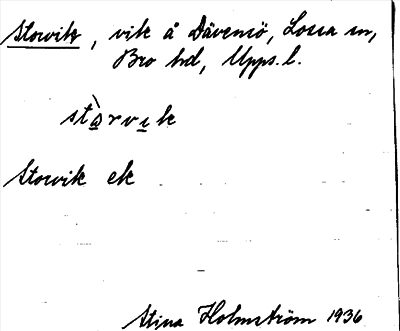 Storvik, vik å Dävensö, Lossa sn,
Bro hd, Upps. l.
stὰrvɩk
Storvik ek
Stina Holmström 1936